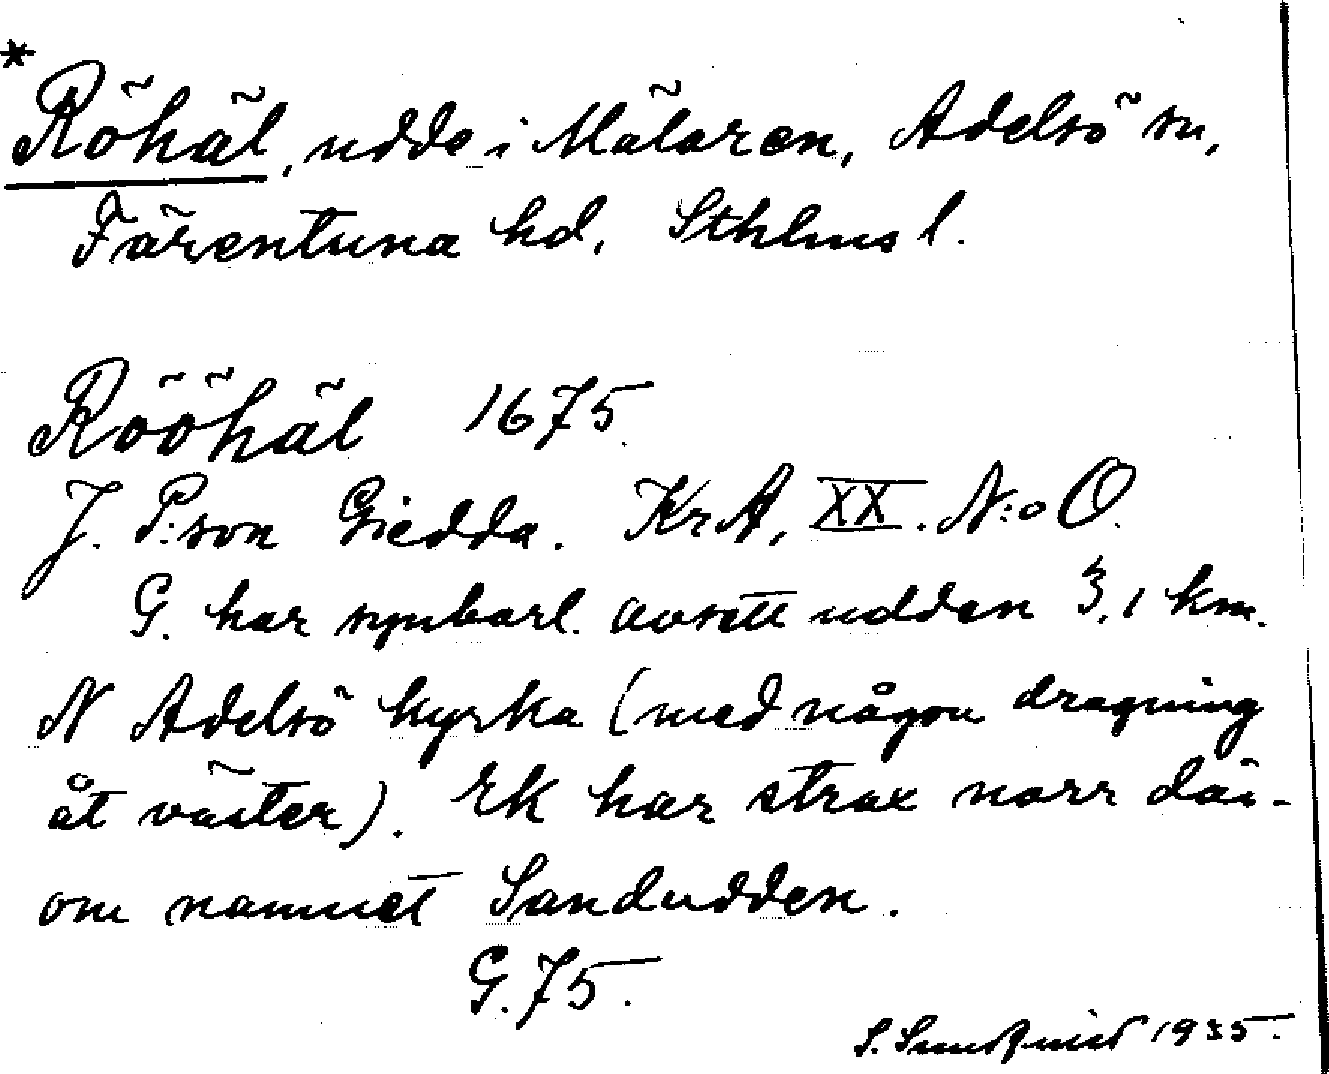 * Röhäl, udde i Mälaren, Adelsö sn,
Färentuna hd, Sthlms l.
Rööhäl 1675
J. P:son Giedda. KrA, XX. N:o O.
G. har synbarl. avsett udden 3,1 km.
N Adelsö kyrka (med någon dragning
åt väster). EK har strax norr där-
om namnet Sandudden.
G. 75.
S. Sundquist 1935.